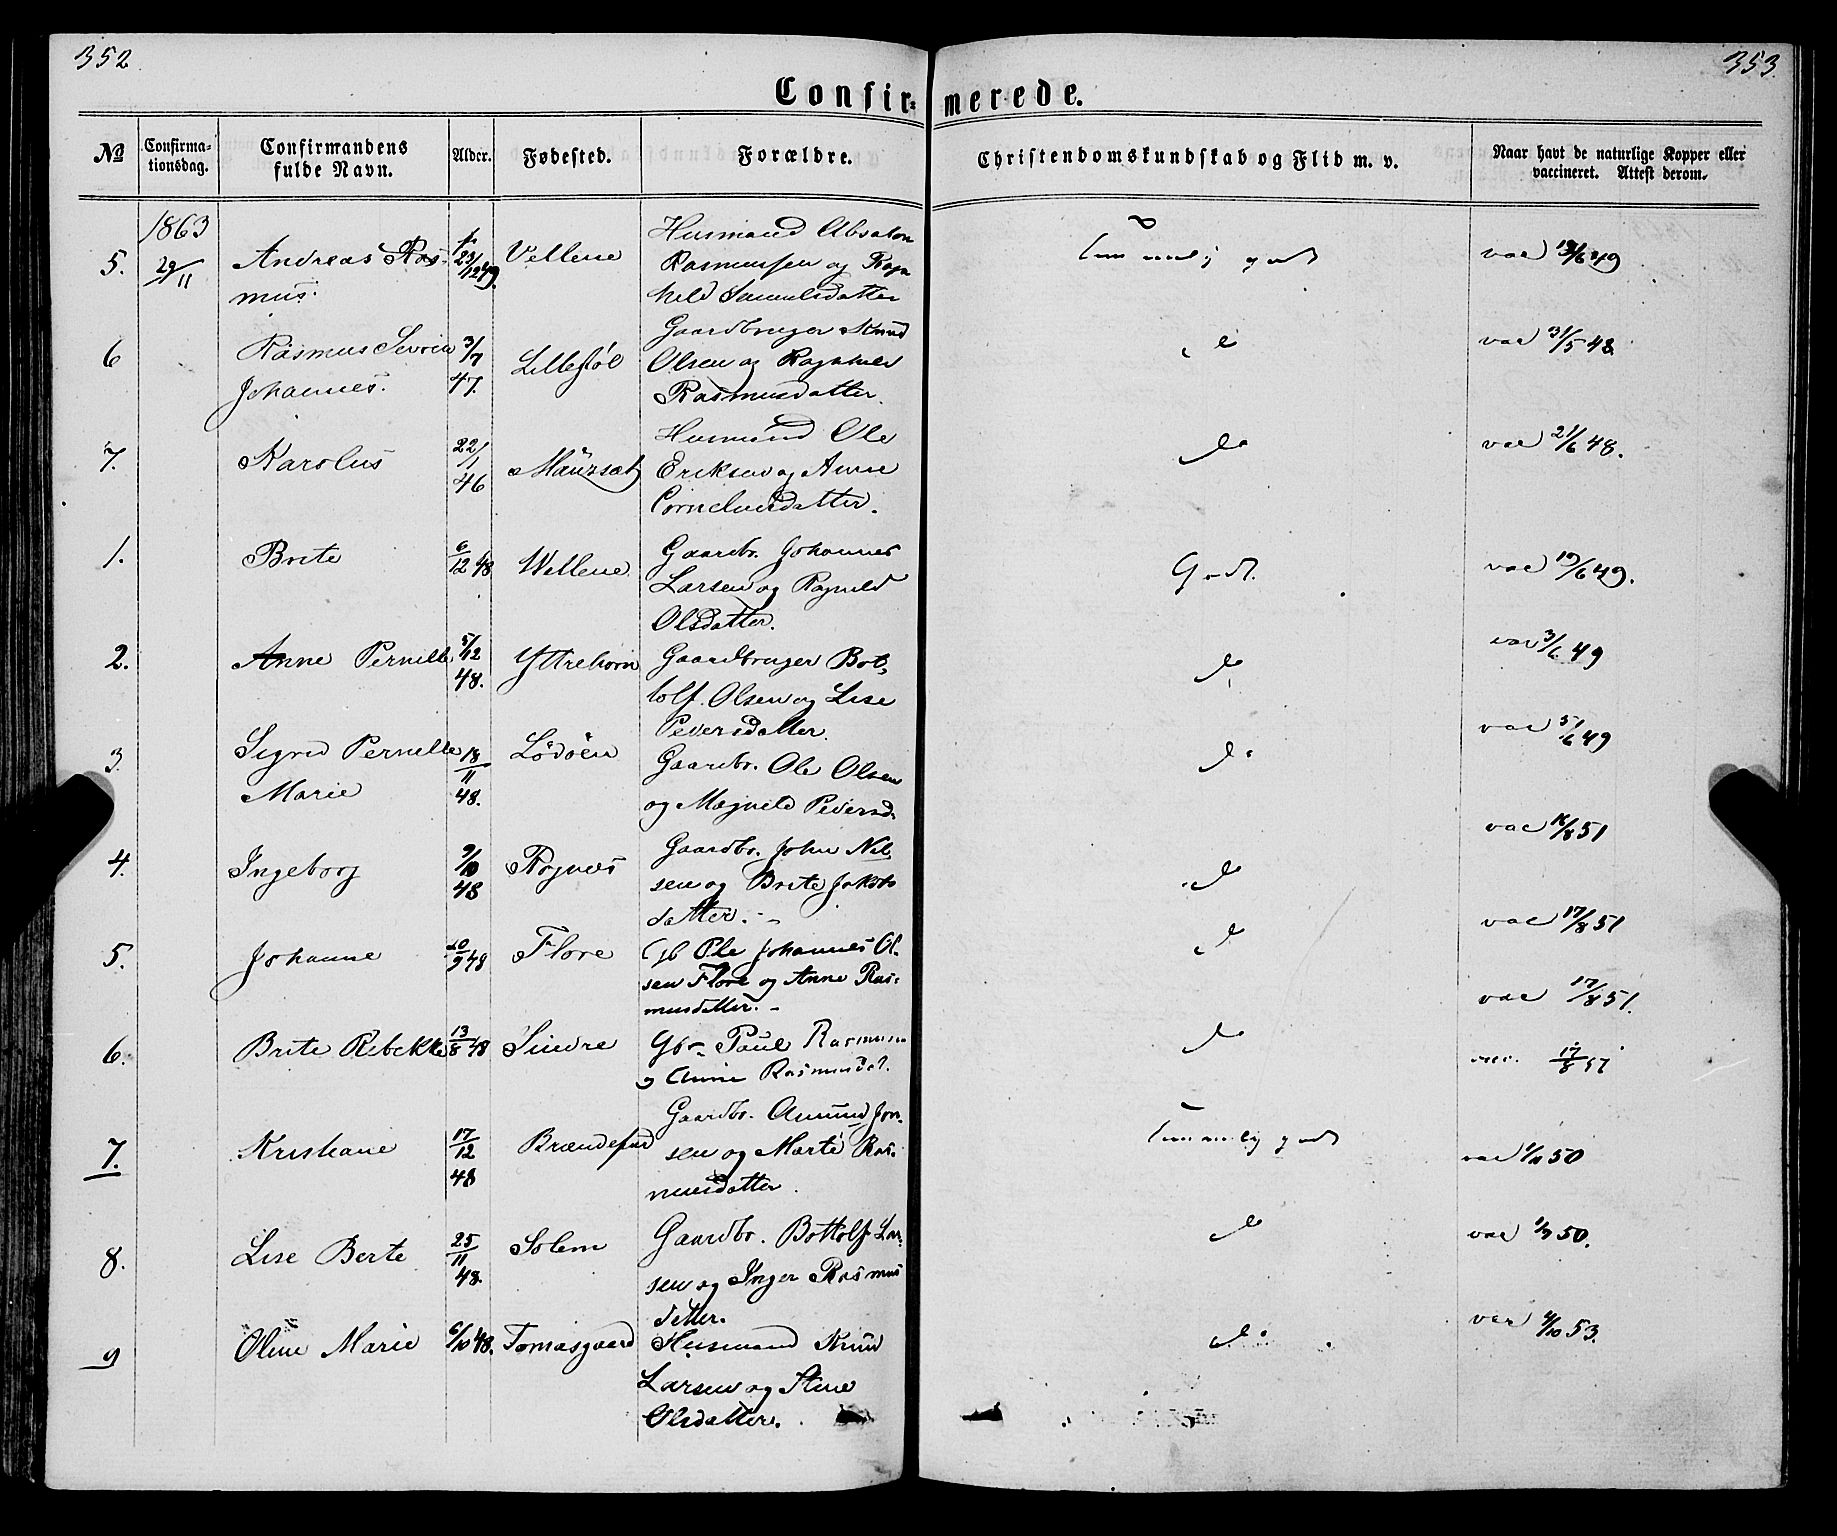 352
353
Confirmerede.
№ Confirmationsdag. Confirmandens fulde Navn. Alder. Fødested. Forældre. Christendomskundskab og Flid m. v. Naar havt de naturlige Kopper eller vaccineret. Attest derom.
1863
5. 29/11 Andreas Rasmus. 23/12 49. Vellene Husmand Absalon
Rasmussen og Ragnhild Samuelsdatter Temmelig godt vac 13/6 49
6 Rasmus Severin
Johannes. 3/7 47. Lillestøl Gaardbruger Knud
Olsen og Ragnhild
Rasmusdatter. do vac 31/5 48
7. Karolus 22/1 46 Husmand Ole
Eriksen og Anne
Corneliusdatter. do vac 21/6 48.
1. Brite 6/12 48 Wellene Gaardbr. Johannes
Larsen og Ragnild
Olsdatter. Godt. vac 19/6 49.
2. Anne Pernille 5/12 48. Yttrehorn Gaardbruger Botholf Olsen og Lise
Pedersdatter. do vac 3/6 49
3. Sigrid Pernille
Marie 18/11 48. Lødøen Gaardbr. Ole Olsen
og Magnild Pedersd. do vac 5/6 49
4. Ingeborg 9/10 48 Rognes Gaardbr. John Nilsen og Brite Jakobsdatter. do vac 16/8 51
5. Johanne 20/9 48 Flore Gb Ole Johannes Olsen Flore og Anne Rasmusdatter. do vac 17/8 51
vac 17/8 51.
6. Brite Rebekke 13/8 48 Sindre Gbr Paul Rasmussen
og Anne Rasmusdat. do vac. 17/8 51
7. Kristiane 17/12 48 Gaardbr. Amund Jonsen og Marte Rasmusdatter. Temmelig godt vac 1/11 50
8. Lise Berte 25/11 48. Solem Gaardbr. Bottolf Larsen og Inger Rasmusdatter. do vac 50.
9 Oline Marie 6/10 48. Tomasgaard Husmand Knud
Larsen og Stine
Olsdatter. do vac 4/10 53.